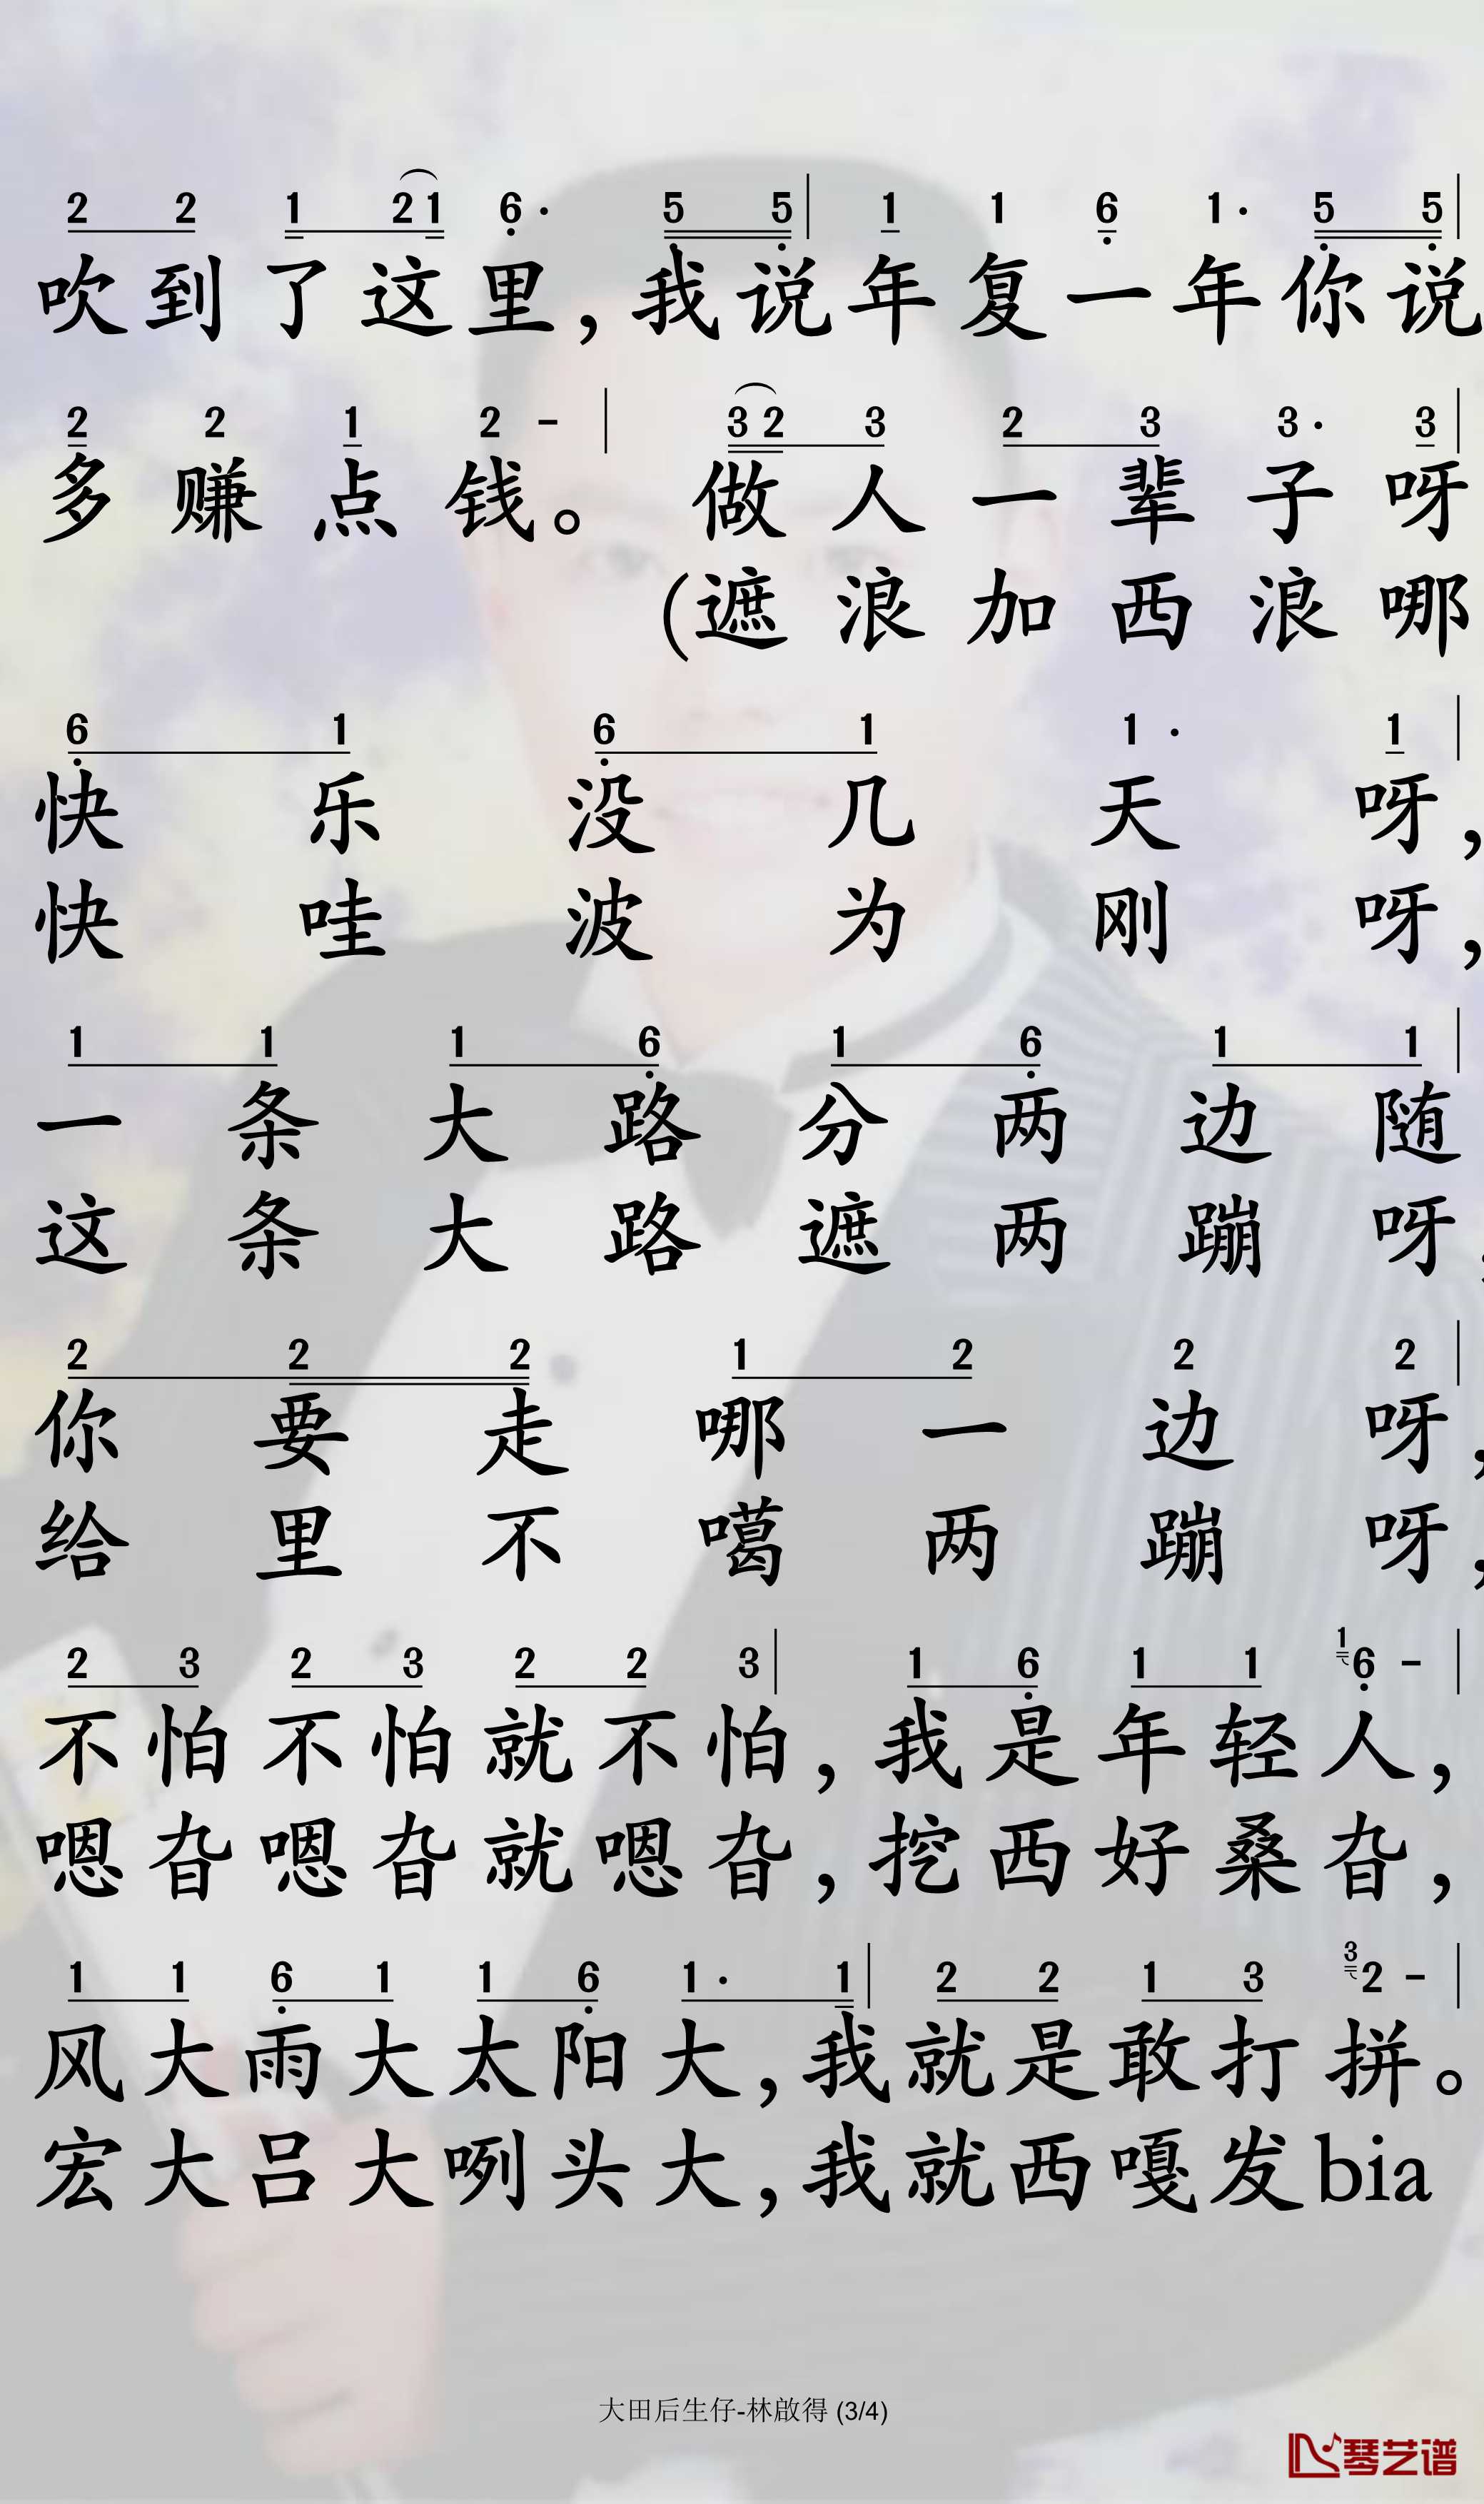 2 2 1 2 1 6 · 5 5 | 1 1 6 1 · 5 5 |
吹到了这里，我说年复一年你说
2 2 1 2 - | 3 2 3 2 3 3 · 3 |
多赚点钱。做人一辈子呀
(遮浪加西浪哪
6 1 6 1 1 · 1 |
快乐没几天呀，
快哇波为刚呀，
1 1 1 6 1 6 1 1 |
一条大路分两边随
这条大路遮两蹦呀，
2 2 2 1 2 2 2 |
你要走哪一边呀，
给里不噶两蹦呀，
2 3 2 3 2 2 3 | 1 6 1 1 1 6 - |
不怕不怕就不怕，我是年轻人，
嗯旮嗯旮就嗯旮，挖西好桑旮，
1 1 6 1 1 6 1 · 1 | 2 2 1 3 3 2 - |
风大雨大太阳大，我就是敢打拼。
宏大吕大咧头大，我就西嘎发bia
大田后生仔-林啟得 (3/4)
琴艺谱